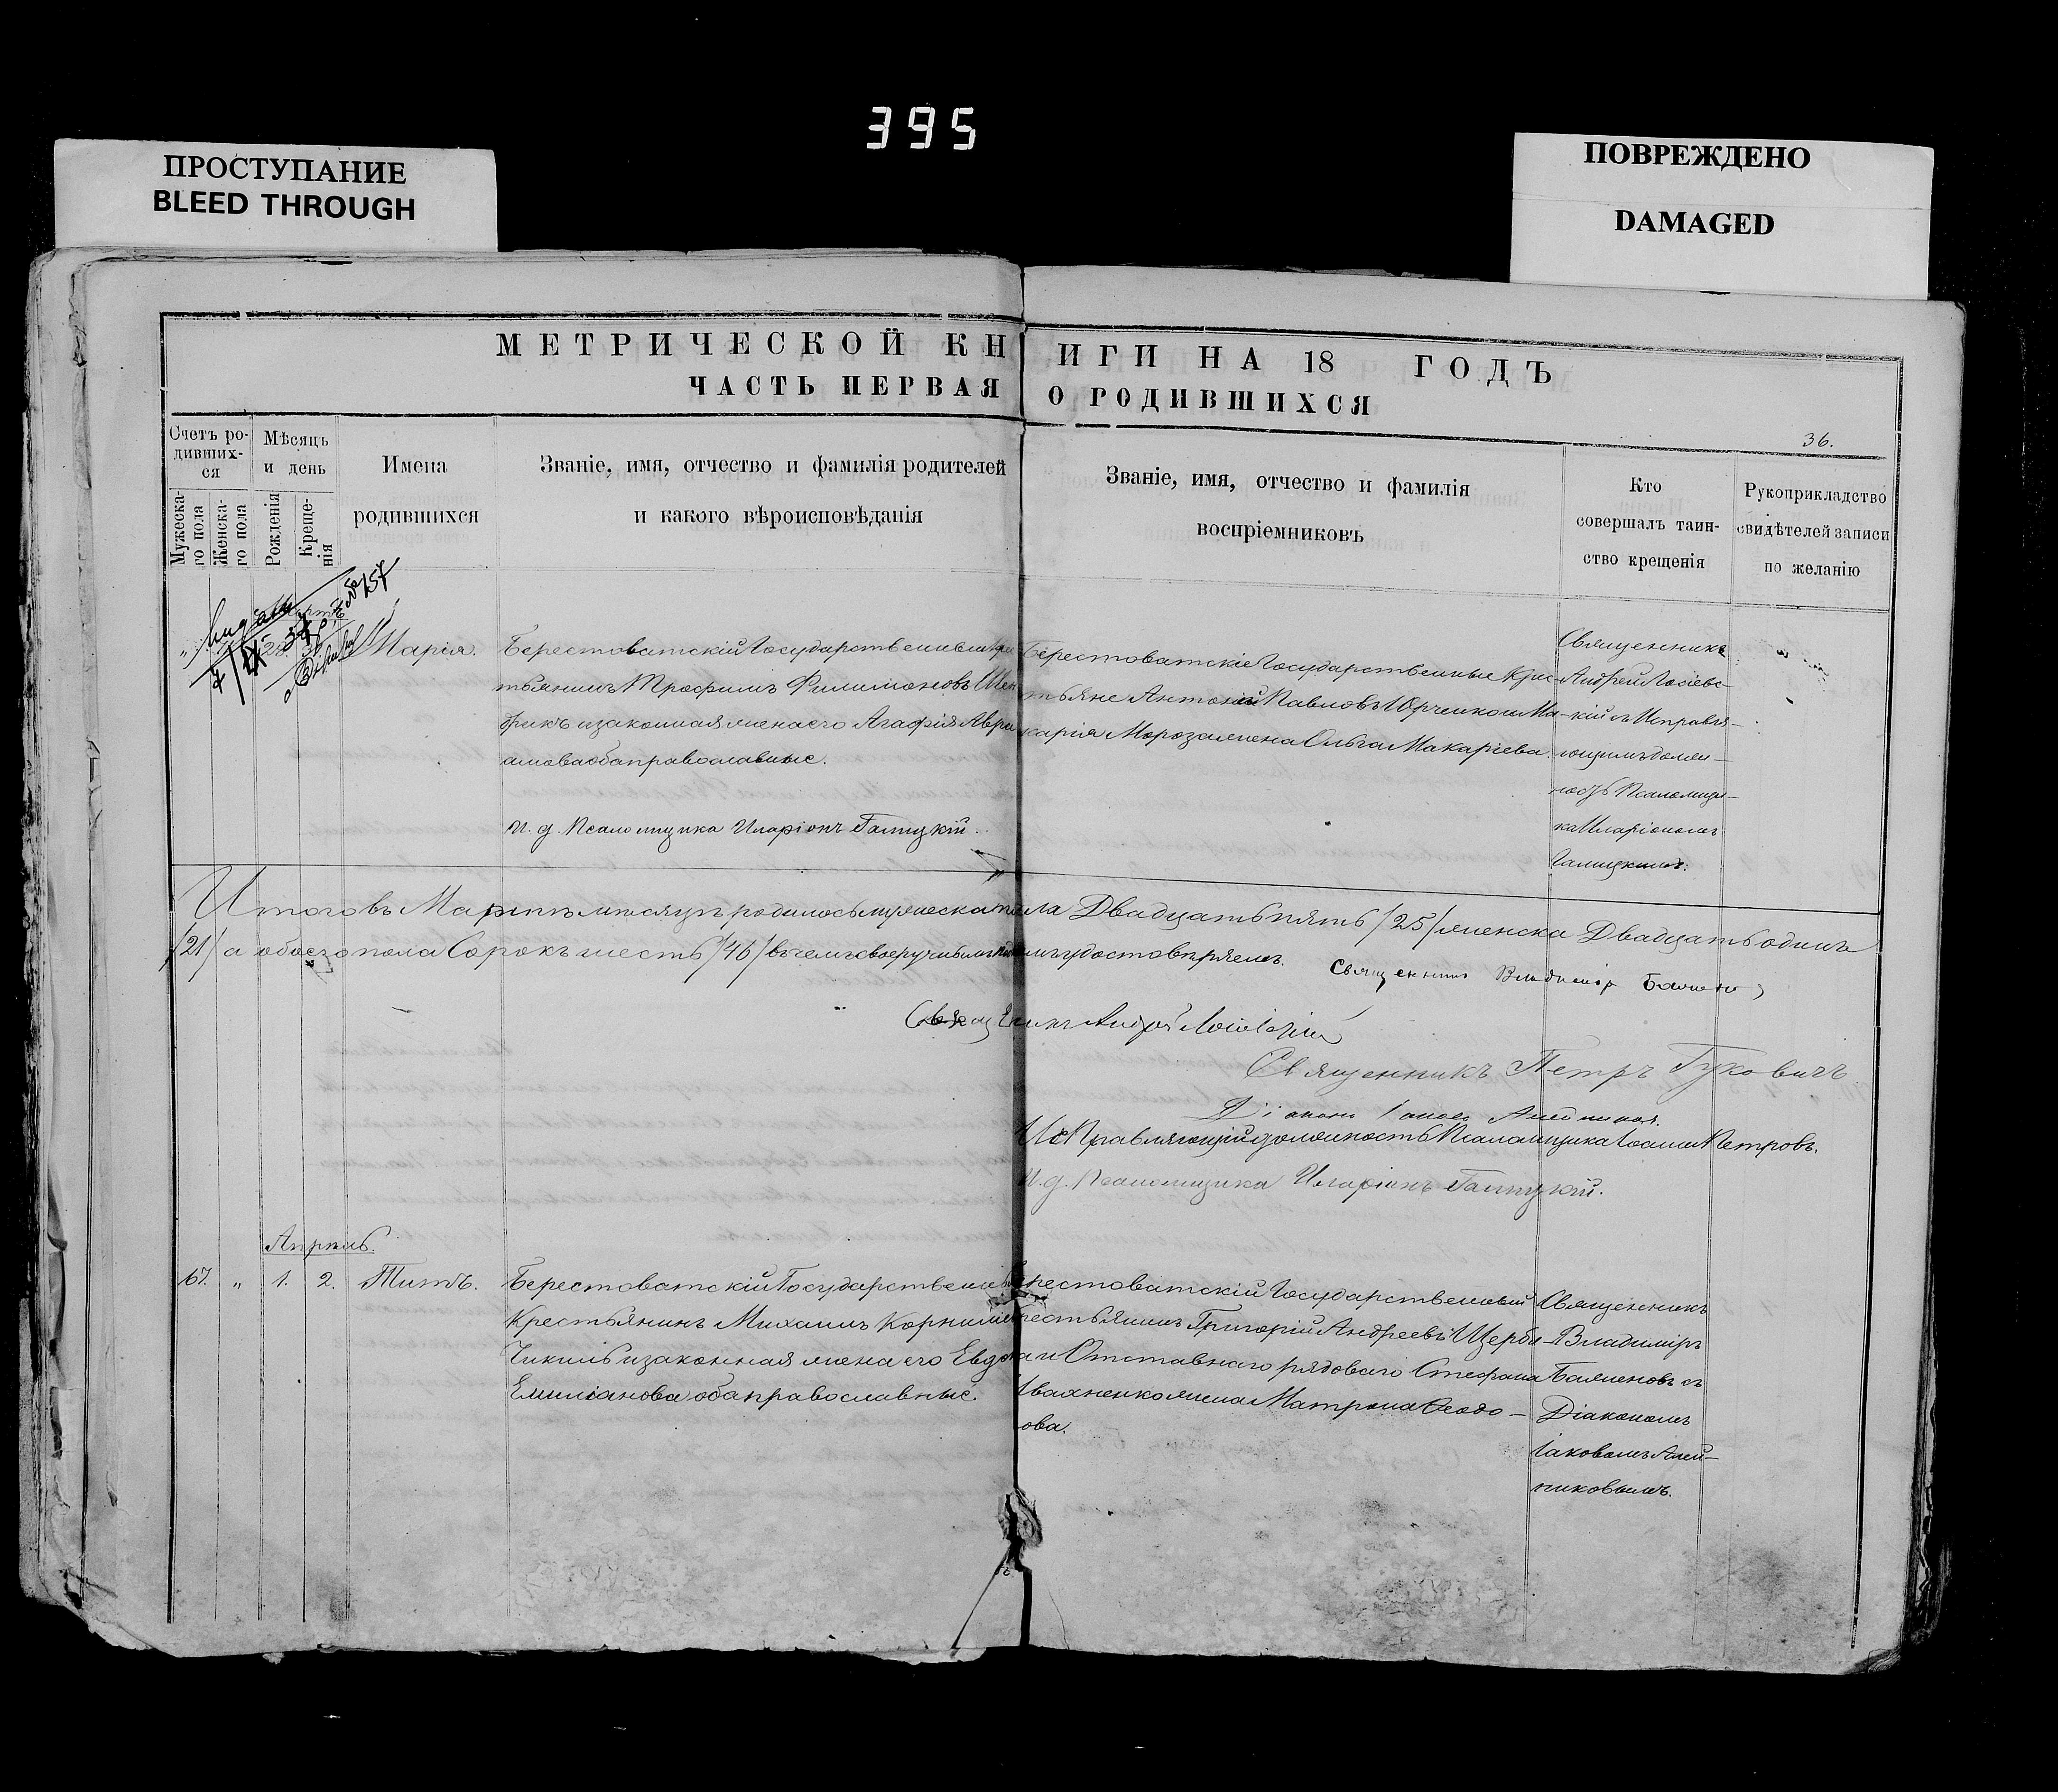 395
ПРОСТУПАНИЕ
BLEED THROUGH
ПОВРЕЖДЕНО
DAMAGED
МЕТРИЧЕСКОЙ КНИГИ НА 18 ГОДЪ
ЧАСТЬ ПЕРВАЯ О РОДИВШИХСЯ
36.
Счетъ ро-
дивших-
ся
Мужеска-
го пола
Женска-
го пола
Мѣсяцъ
и день
Рожденія
Креще-
нія
Имена
родившихся
Званіе, имя, отчество и фамилія родителей
и какого вѣроисповѣданія
Званіе, имя, отчество и фамилія
воспріемниковъ
Кто
совершалъ таин-
ство крещенія
Рукоприкладство
свидѣтелей записи
по желанію
№ 157
Марія.
Берестоватскій Государственный Крес
тьянинъ Трофимъ Филимоновъ
и законная жена его Агафія Авра
амова оба православные.
И. д. Псаломщика Иларіонъ Галицкій.
Берестоватскіе Государственные Крес-
тьяне Антоній Павловъ Юрченко и Ма-
карія Мороза жена Ольга Макаріева.
Священникъ
Андрей
кій съ Исправля-
ющимъ должн-
ность Псаломщи-
ка Иларіономъ
Галицкимъ.
Итого въ Мартѣ мѣсяцѣ родилось мужеска пола Двадцать пять /25/ женска Двадцать одинъ
/21/ а обоего пола Сорокъ шесть /46/ въ чемъ своеручнымъ удостовѣряемъ.
Священникъ Владиміръ
Священникъ Андрей
Священникъ Петръ Гуковичъ
Діаконъ Іаковъ Алейниковъ.
Исправляющій должность Псаломщика Іоаннъ Петровъ.
И. д. Псаломщика Иларіонъ Галицкій.
Апрѣль.
167. " 1. 2. Титъ.
Берестоватскій Государственный
Крестьянинъ Михаилъ Корниліевъ
Чикиль и законная жена его Евдокія
Емиліанова оба православные.
Берестоватскій Государственный
Крестьянинъ Григорій Андреевъ Щерби-
на и Отставнаго рядоваго Стефана
Ивахненко жена Матрона Ѳеодо-
ова.
Священникъ
Владиміръ
Баженовъ съ
Діакономъ
Іаковомъ Алей-
никовымъ.